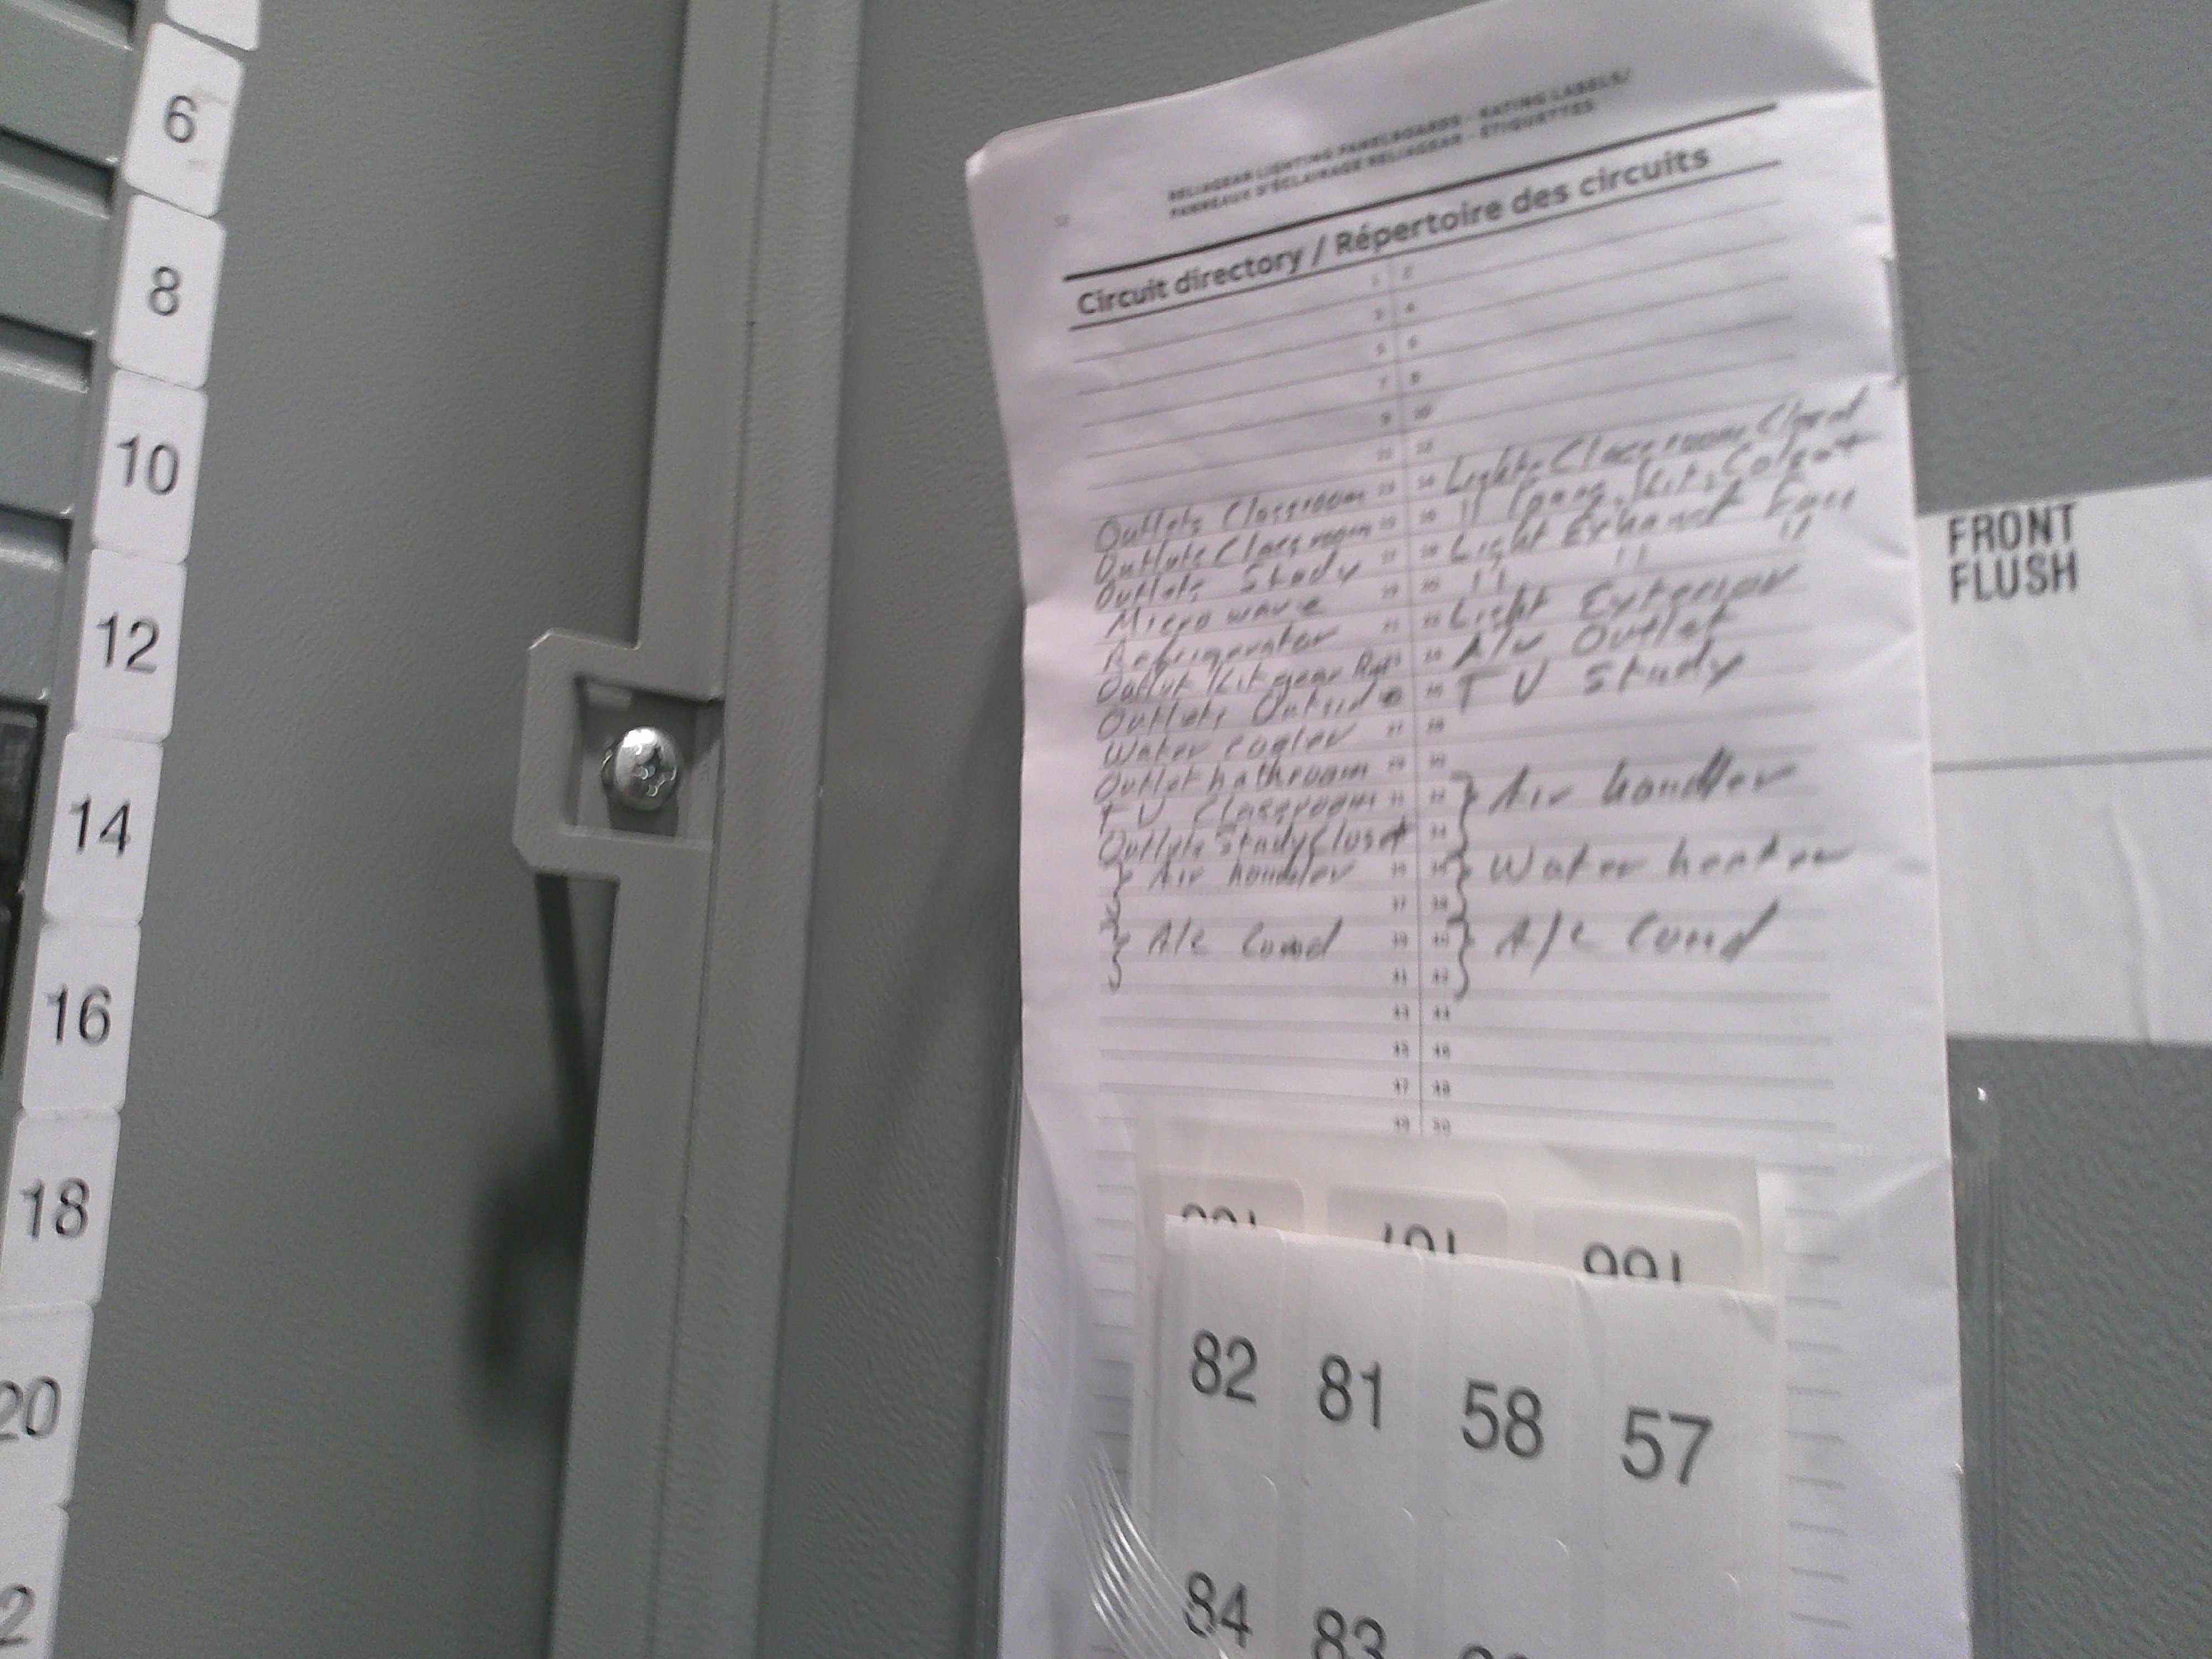 6
8
10
12
14
16
18
20
2
RELIAGEAR LIGHTING PANELBOARDS - RATING LABELS/
PANNEAUX D'ÉCLAIRAGE RELIAGEAR - ÉTIQUETTES
Circuit directory / Répertoire des circuits
1 2
3 4
5 6
7 8
9 10
11 12
Outlets Classroom 13 14 Lights Classroom Closet
Outlets Classroom 15 16 11
Outlets Study 17 18 Light Exhaust Fan
Microwave 19 20 11 11 11
Refrigerator 21 22 Light Exterior
Outlet 23 24 A/V Outlet
Outlets Outside 25 26 TV Study
Water cooler 27 28
Outlet bathroom 29 30
TV Classroom 31 32 } Air handler
Outlets Study Closet 33 34
} Air handler 35 36 } Water heater
37 38
} A/C Cond 39 40 } A/C Cond
41 42
43 44
45 46
47 48
49 50
FRONT
FLUSH
82 81 58 57
84 83